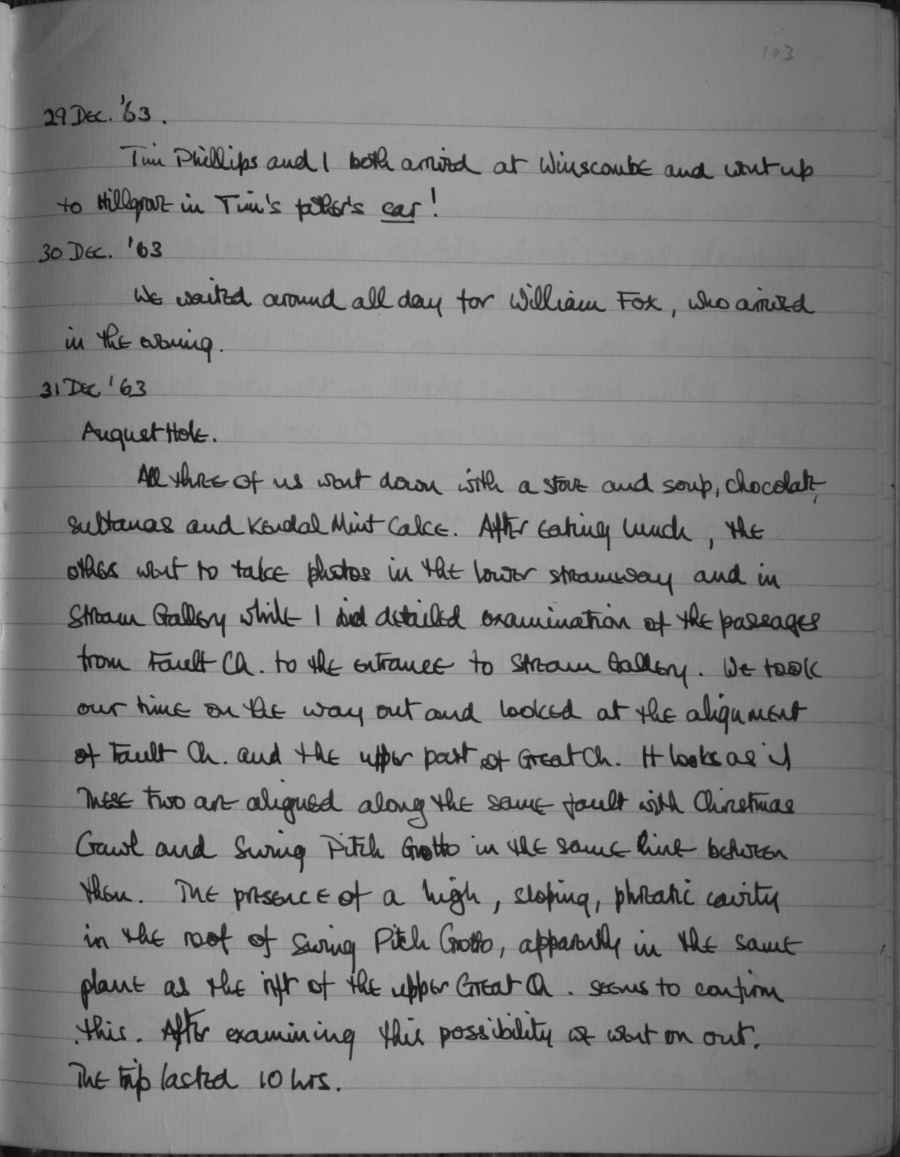 103
29 Dec. '63.
Tim Phillips and I both arrived at Winscombe and went up
to Hillgrove in Tim's father's car!
30 Dec. '63
We waited around all day for William Fox, who arrived
in the evening.
31 Dec '63
August Hole.
All three of us went down with a stove and soup, chocolate,
sultanas and Kendal Mint Cake. After eating lunch, the
others went to take photos in the lower streamway and in
Stream Gallery while I did detailed examination of the passages
from Fault Ch. to the entrance to Stream Gallery. We took
our time on the way out and looked at the alignment
of Fault Ch. and the upper part of Great Ch. It looks as if
these two are aligned along the same fault with Christmas
Crawl and Swing Pitch Grotto in the same line between
them. The presence of a high, sloping, phreatic cavity
in the roof of Swing Pitch Grotto, apparently in the same
plane as the rift of the upper Great Ch. seems to confirm
this. After examining this possibility we went on out.
The trip lasted 10 hrs.